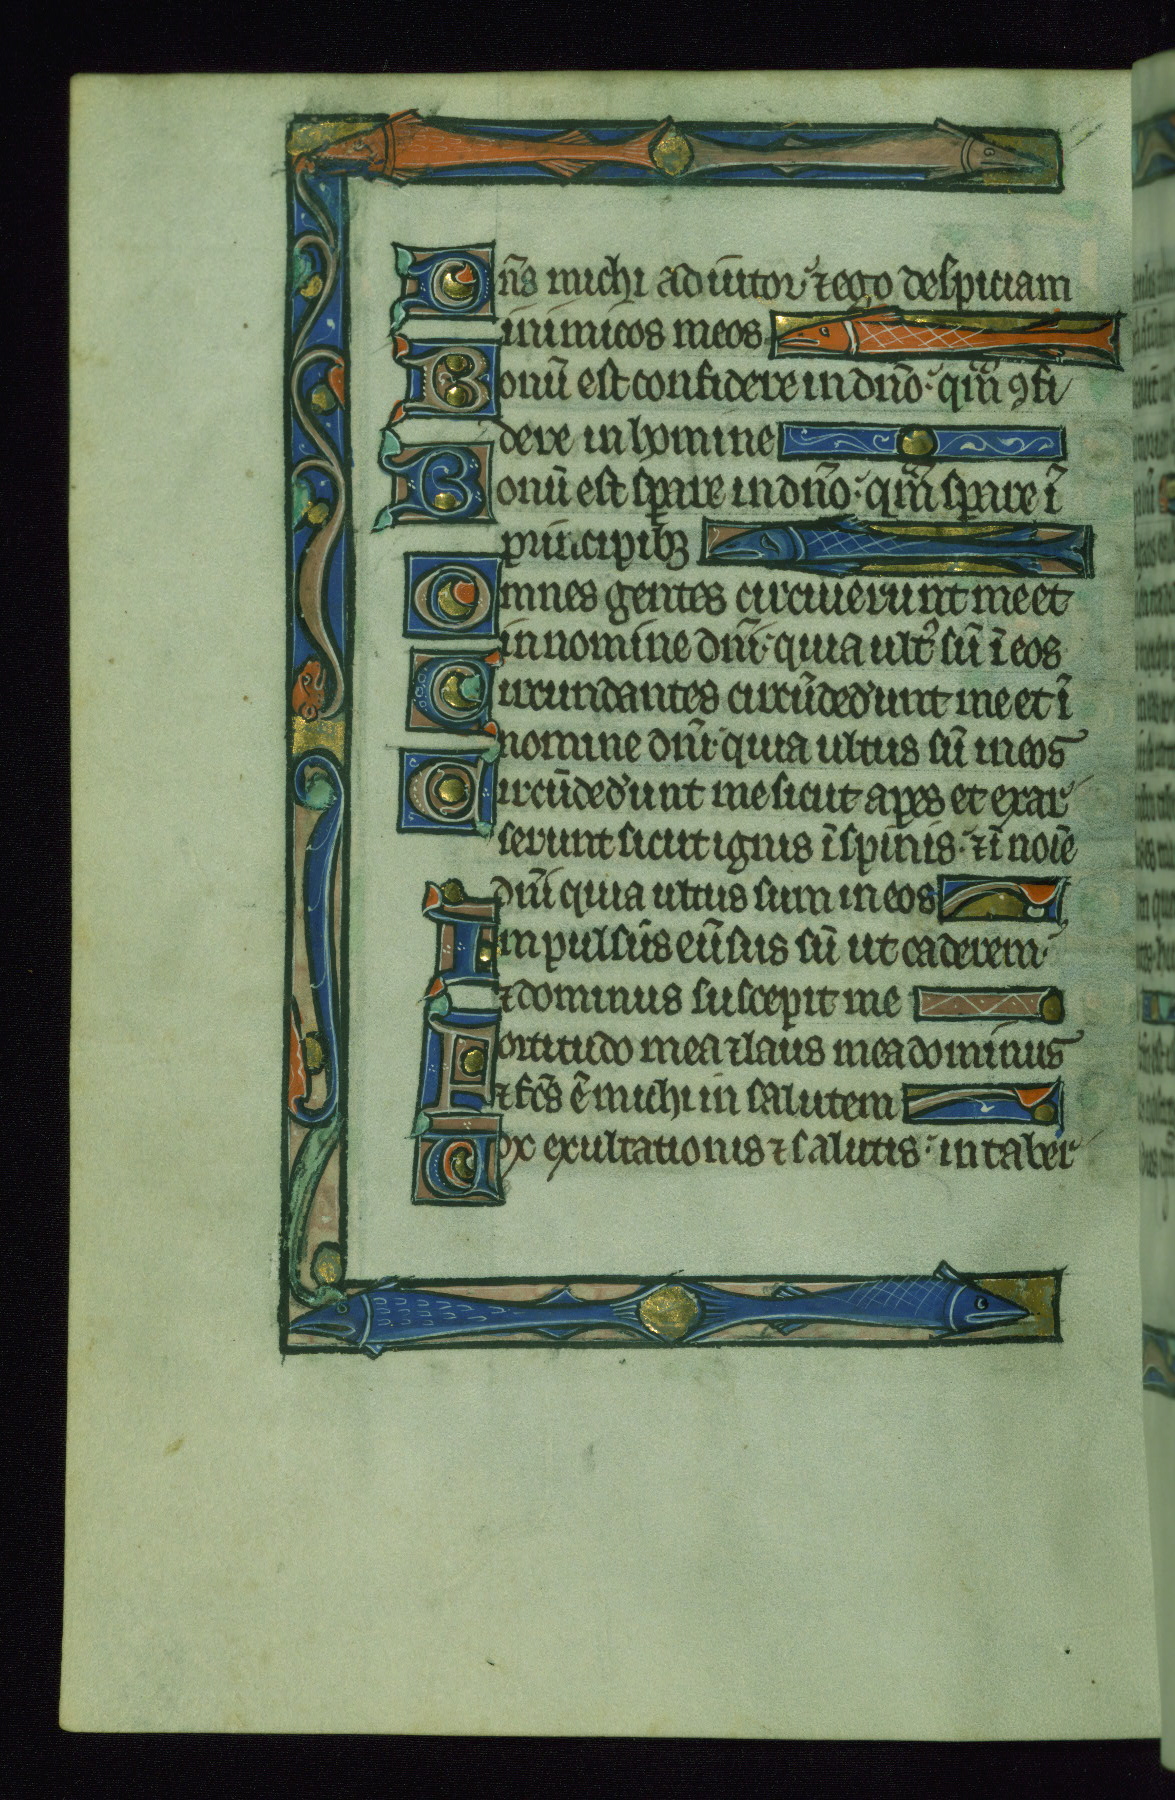 Dn̄s michi adiutor ⁊ ego despiciam
inimicos meos
Bonū est confidere in dn̄o qm̄ ꝯfi
dere in homine
Bonū est sꝑare in dn̄o qm̄ sꝑare ī
principibꝫ
Omnes gentes circuierunt me et
in nomine dn̄i quia ult᷒ sū ī eos
Circundantes circūded̓unt me et ī
nomine dn̄i quia ultus sū in eos
Circūded̓unt me sicut apes et exar
serunt sicut ignis ī spinis ⁊ ī noīe
dn̄i quia ultus sum in eos
Impulsūs eūsus sū ut caderem
⁊ dominus suscepit me
Fortitudo mea ⁊ laus mea dominus
⁊ fc̄s ē michi in salutem
Vox exultationis ⁊ salutis in taber